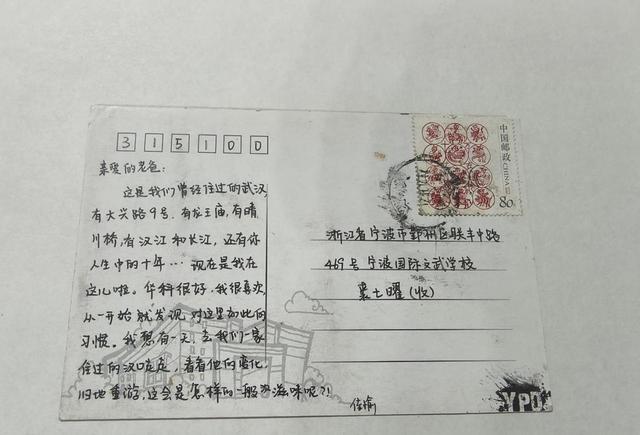 315100
亲爱的老爸：
这是我们曾经住过的武汉,
有大兴路9号,有龙王庙,有晴
川桥,有汉江和长江,还有你
人生中的十年…现在是我在
这儿啦。华科很好,我很喜欢,
从一开始就发现对这里如此的
习惯。我想有一天,去我们一家
住过的汉口走走,看看他的变化,
旧地重游,这会是怎样的一般滋味呢?!
佳瑜
中国邮政
CHINA
80
浙江省宁波市鄞州区联丰中路
469号宁波国际文武学校
七曜(收)
YPO